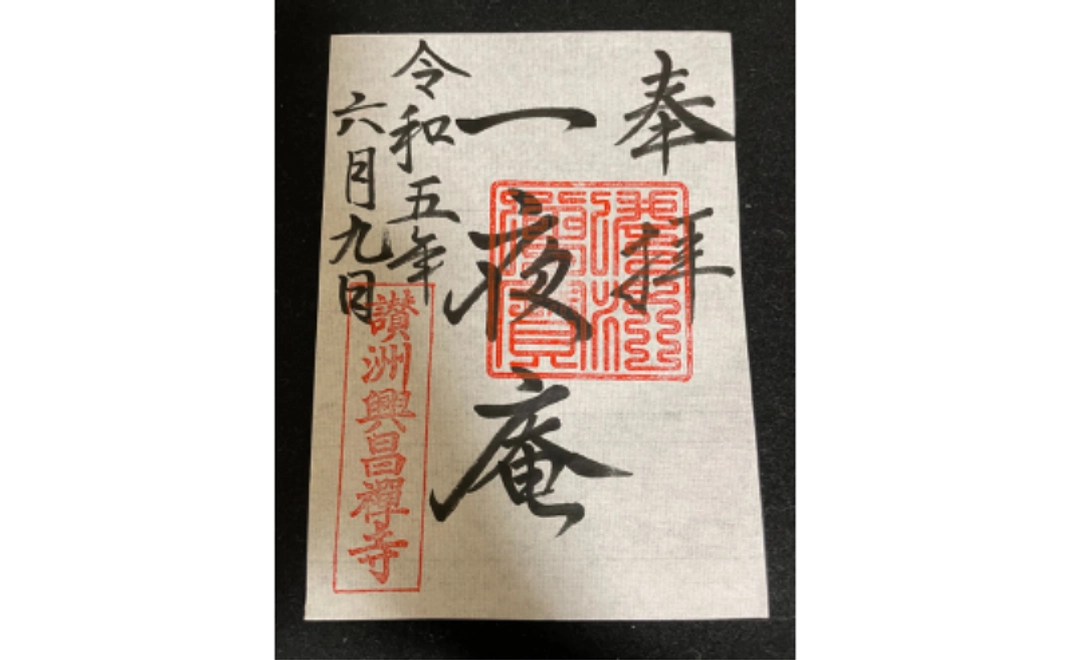 奉拝
一夜庵
令和五年
六月九日
讃洲興昌禪寺